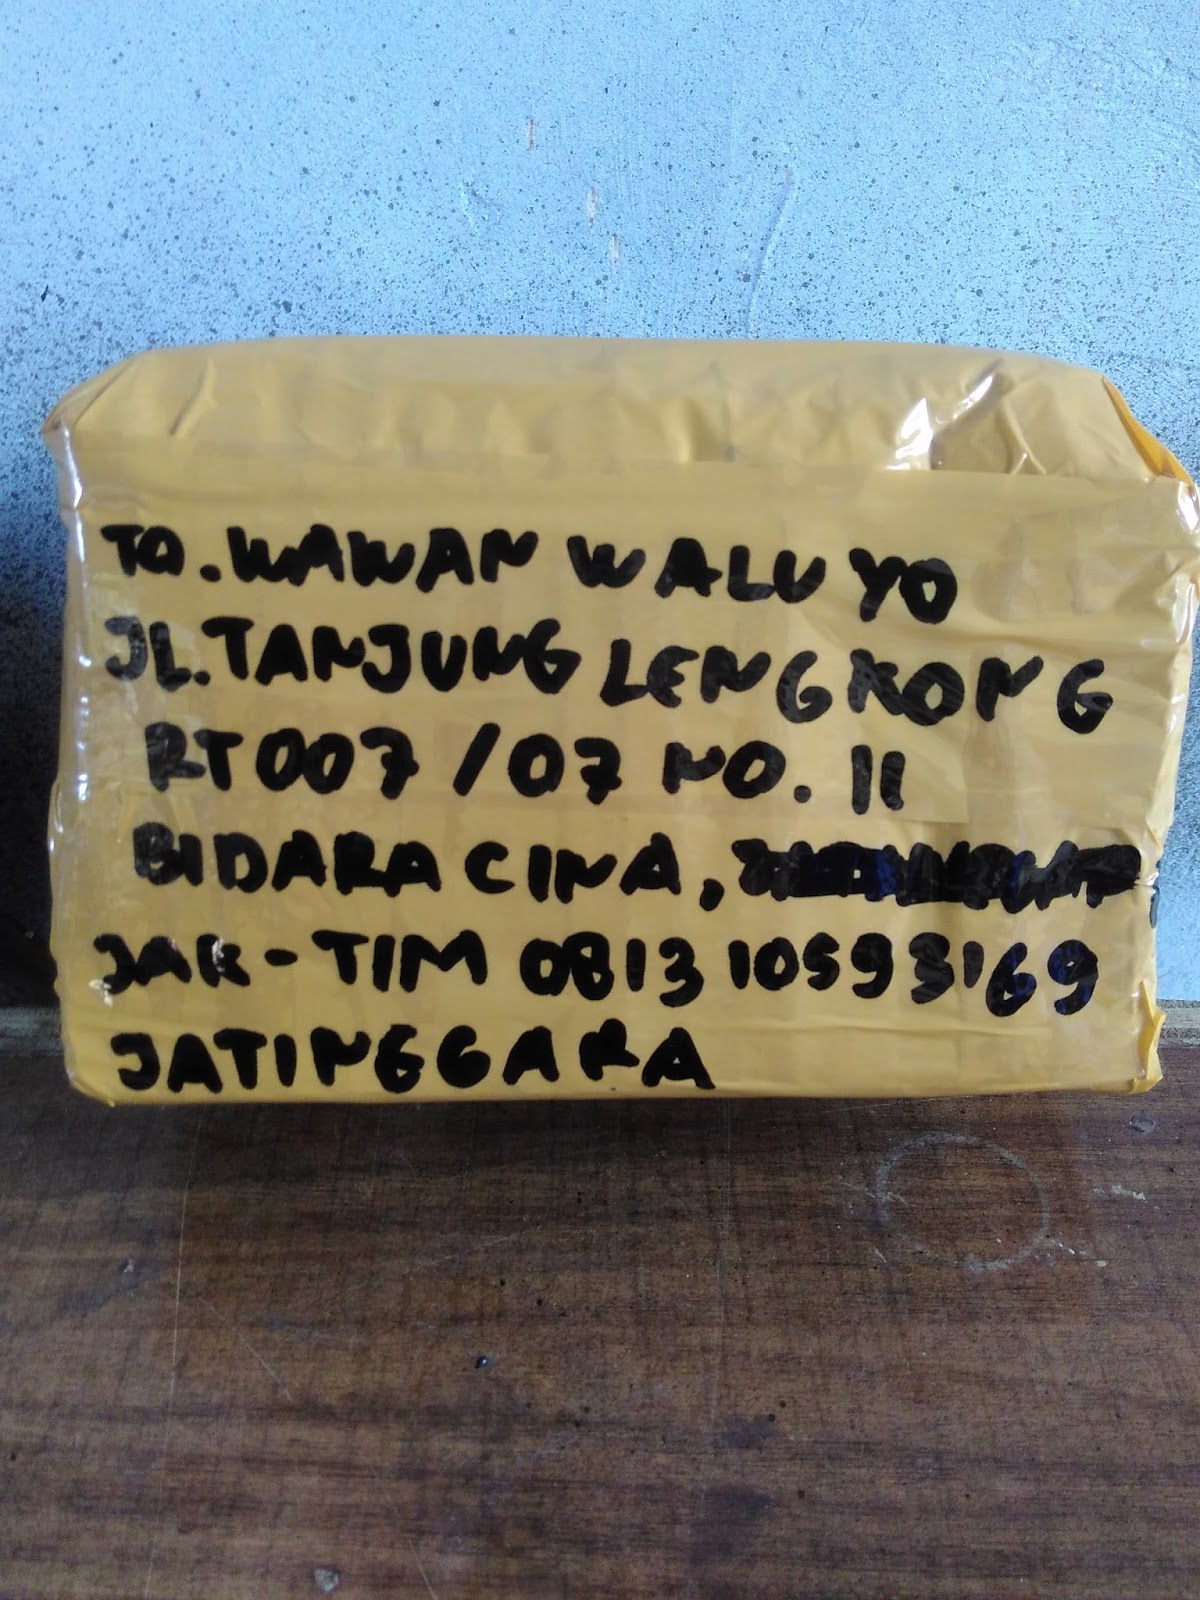 TO. WAWAN WALUYO
JL. TANJUNG LENGKONG
RT007/07 NO. 11
BIDARA CINA,
JAK-TIM 0813 10593169
JATINGGARA